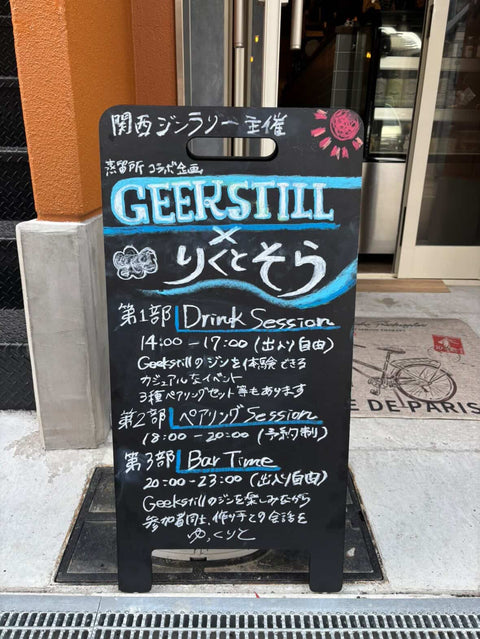 関西ジンラリー主催
蒸留所コラボ企画
GEEKSTILL
×
りくとそら
第1部 Drink Session
14:00-17:00 (出入り自由)
Geekstillのジンを体験できる
カジュアルなイベント
3種ペアリングセット等もあります
第2部 ペアリングSession
18:00-20:00 (予約制)
第3部 Bar Time
20:00-23:00 (出入り自由)
Geekstillのジンを楽しみながら
参加者同士、作り手との会話を
ゆっくりと
E DE PARIS